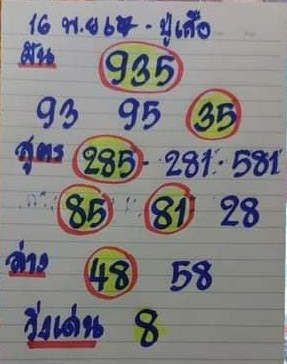 16 พ.ย 67 - ปู่เสือ
ฝัน 935
93 95 35
สูตร 285 - 281 - 581
85 81 28
ล่าง 48 58
วิ่งเด่น 8